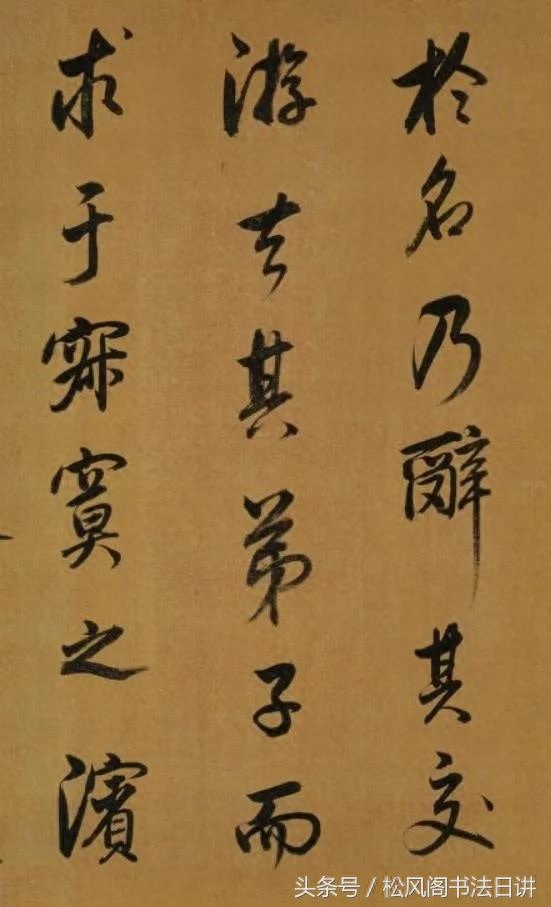 於名乃辭其交
游去其弟子而
求于寂寞之濱
头条号／松风阁书法日讲